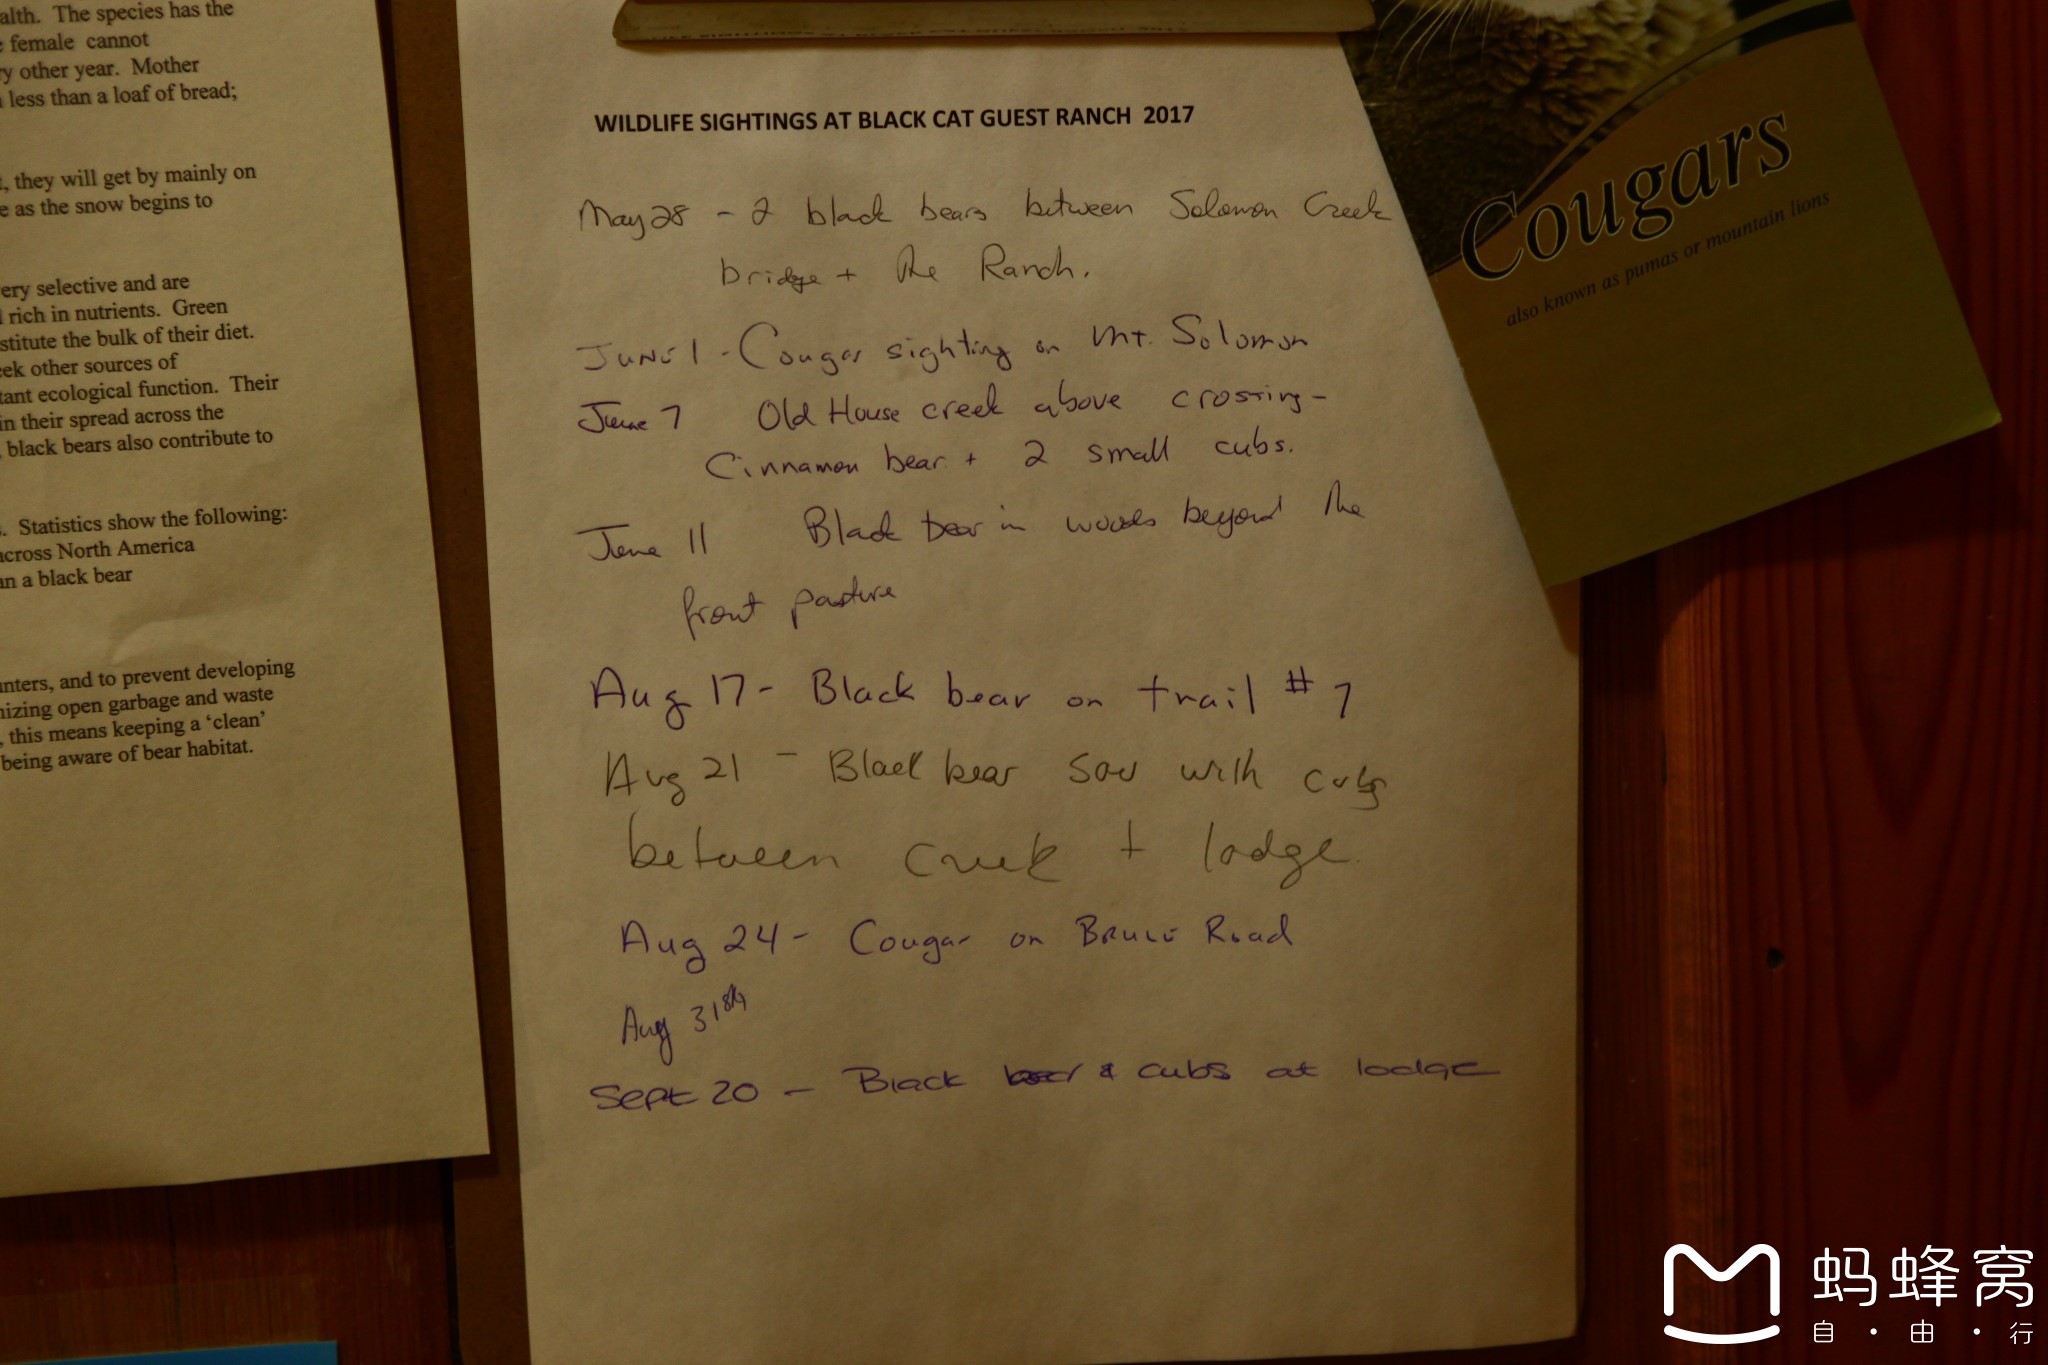 alth. The species has the
female cannot
ry other year. Mother
less than a loaf of bread;
t, they will get by mainly on
e as the snow begins to
ery selective and are
rich in nutrients. Green
stitute the bulk of their diet.
eek other sources of
tant ecological function. Their
in their spread across the
black bears also contribute to
s. Statistics show the following:
across North America
an a black bear
unters, and to prevent developing
nizing open garbage and waste
, this means keeping a ‘clean’
being aware of bear habitat.
WILDLIFE SIGHTINGS AT BLACK CAT GUEST RANCH 2017
May 28 - 2 black bears between Solomon Creek
bridge + the Ranch.
June 1 - Cougar sighting on Mt. Solomon
June 7 Old House creek above crossing -
Cinnamon bear + 2 small cubs.
June 11 Black bear in woods beyond the
front pasture
Aug 17 - Black bear on trail # 7
Aug 21 - Black bear sow with cubs
between creek + lodge.
Aug 24 - Cougar on Bruce Road
Aug 31st
Sept 20 - Black bear & cubs at lodge
Cougars
also known as pumas or mountain lions
蚂蜂窝
自·由·行